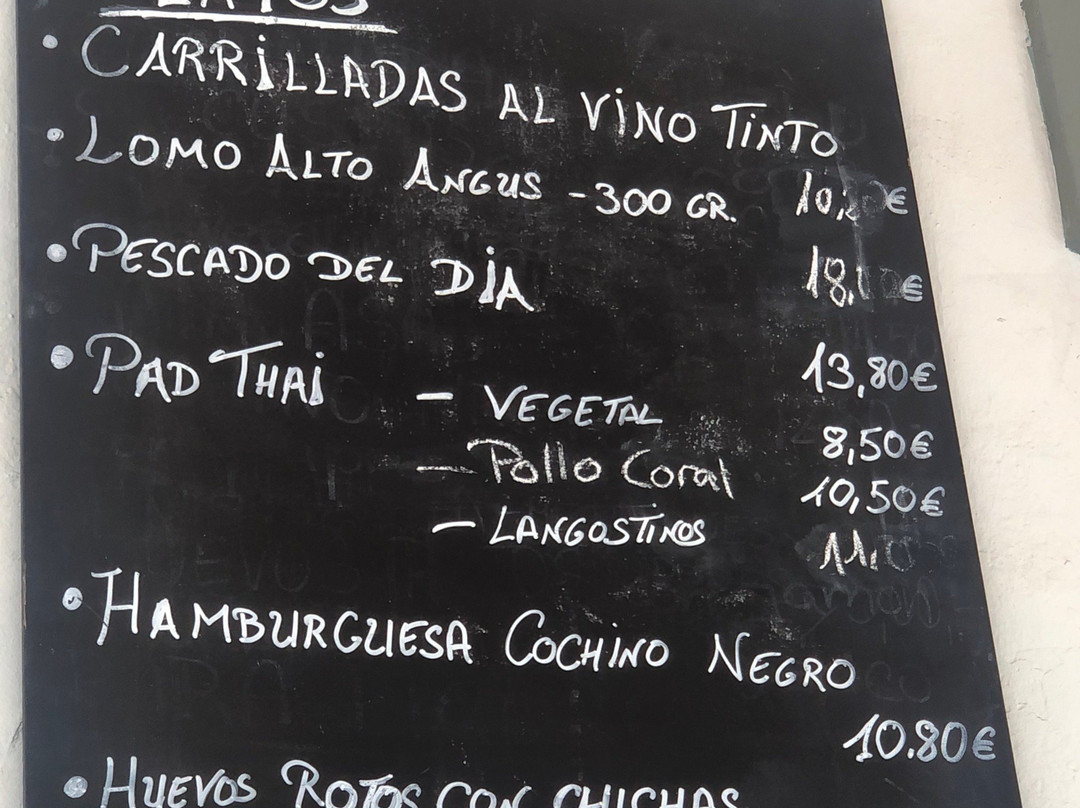 • CARRILLADAS AL VINO TINTO
• LOMO ALTO ANGUS - 300 GR.
• PESCADO DEL DÍA
13,80€
• PAD THAI - VEGETAL
8,50€
- Pollo Coral
10,50€
- LANGOSTINOS
• HAMBURGUESA COCHINO NEGRO
10.80€
• HUEVOS ROTOS CON CHICHAS